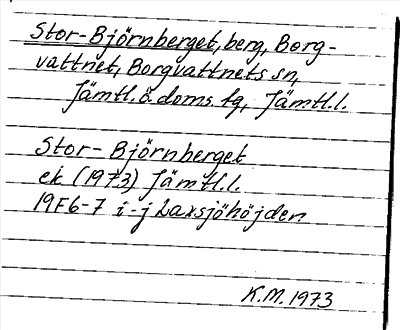 Stor-Björnberget, berg, Borg-
vattnet, Borgvattnets sn,
Jämtl. ö. doms. tg, Jämtl.l.
Stor-Björnberget
ek (1973) Jämtl.l.
19F6-7 i-j Laxsjöhöjden
K.M. 1973